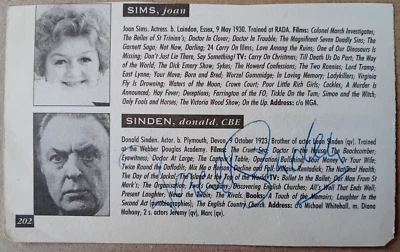 SIMS, joan
Joan Sims. Actress. b. Laindon, Essex, 9 May 1930. Trained at RADA. Films: Colonel March Investigates;
The Belles of St Trinian's; Doctor in Clover; Doctor In Trouble; The Magnificent Seven Deadly Sins; The
Garnett Saga; Not Now, Darling; 24 Carry On films; Love Among the Ruins; One of Our Dinosaurs is
Missing; Don't Just Lie There, Say Something! TV: Carry On Christmas; Till Death Us Do Part; The Way
of the World; The Dick Emery Show; Sykes; The Howerd Confessions; The Two Ronnies; Lord Tramp;
East Lynne; Your Move; Born and Bred; Worzel Gummidge; In Loving Memory; Ladykillers; Virginia
Fly Is Drowning; Waters of the Moon; Crown Court; Poor Little Rich Girls; Cockles; A Murder Is
Announced; Hay Fever; Deceptions; Farrington of the FO; Tickle On the Tum; Simon and the Witch;
Only Fools and Horses; The Victoria Wood Show; On the Up. Address: c/o MGA.
SINDEN, donald, CBE
Donald Sinden. Actor. b. Plymouth, Devon, 9 October 1923. Brother of actor Leon Sinden (qv). Trained
at the Webber Douglas Academy. Films: The Cruel Sea; Doctor in the House; The Beachcomber;
Eyewitness; Doctor At Large; The Captain's Table; Operation Bullshine; Your Money Or Your Wife;
Twice Round the Daffodils; Mix Me a Person; Decline and Fall; Villain; Rentadick; The National Health;
The Day of the Jackal; The Island at the Top of the World. TV: Bullet in the Ballet; Our Man From St
Mark's; The Organisation; Discovering English Churches; All's Well That Ends Well;
Present Laughter; Never the Twain; The Rivals. Books: A Touch of the Memoirs; Laughter In the
Second Act (autobiographies); The English Country Church. Address: c/o Michael Whitehall. m. Diana
Mahony; 2 s. actors Jeremy (qv), Marc (qv).
202